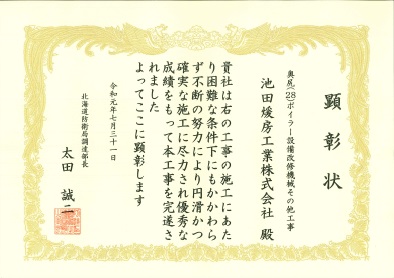 顕彰状
奥尻(28)ボイラー設備改修機械その他工事
池田煖房工業株式会社 殿
貴社は右の工事の施工にあた
り困難な条件下にもかかわら
ず不断の努力により円滑かつ
確実な施工に尽力され優秀な
成績をもって本工事を完遂さ
れました
よってここに顕彰します
令和元年七月三十一日
北海道防衛局調達部長
太田 誠二